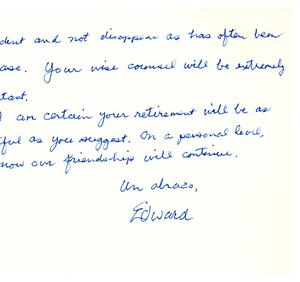 dent and not disappear as has often been
ase. Your wise counsel will be extremely
tant.
I am certain your retirement will be as
ful as you suggest. On a personal level,
now our friendship will continue.
Un abrazo,
Edward